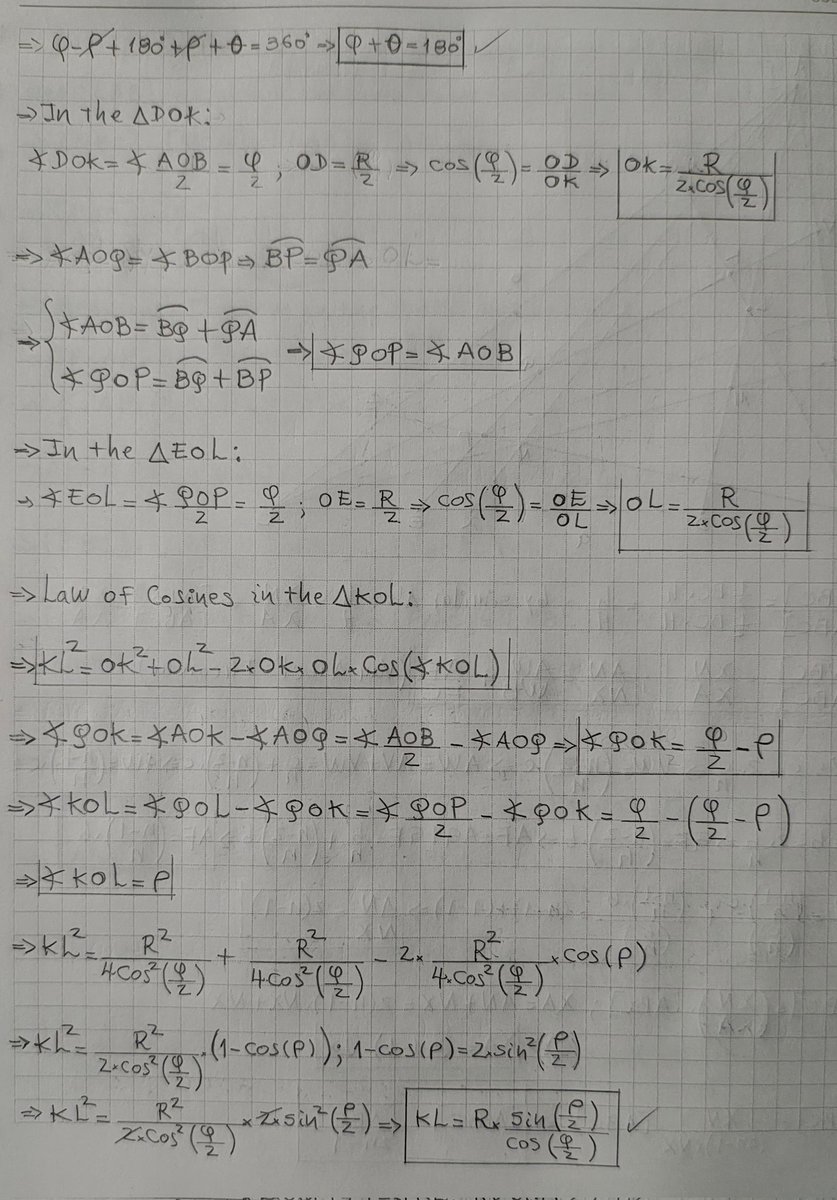 ⇒ φ-ρ+180°+ρ+θ=360° ⇒ φ+θ=180° ✓
⇒ In the ΔDOK:
∢DOK=∢AOB/2=φ/2; OD=R/2 ⇒ cos(φ/2)=OD/OK ⇒ OK=R/(2×cos(φ/2))
⇒ ∢AOQ=∢BOP ⇒ BP=QA
⇒ { ∢AOB=BQ+QA
∢QOP=BQ+BP ⇒ ∢QOP=∢AOB
⇒ In the ΔEOL:
⇒ ∢EOL=∢QOP/2=φ/2; OE=R/2 ⇒ cos(φ/2)=OE/OL ⇒ OL=R/(2×cos(φ/2))
⇒ Law of Cosines in the ΔKOL:
⇒ KL²=OK²+OL²-2×OK×OL×Cos(∢KOL)
⇒ ∢QOK=∢AOK-∢AOQ=∢AOB/2-∢AOQ ⇒ ∢QOK=φ/2-ρ
⇒ ∢KOL=∢QOL-∢QOK=∢QOP/2-∢QOK=φ/2-(φ/2-ρ)
⇒ ∢KOL=ρ
⇒ KL²=R²/(4cos²(φ/2))+R²/(4cos²(φ/2))-2×R²/(4×cos²(φ/2))×cos(ρ)
⇒ KL²=R²/(2×cos²(φ/2))·(1-cos(ρ)); 1-cos(ρ)=2×sin²(ρ/2)
⇒ KL²=R²/(2×cos²(φ/2))×2×sin²(ρ/2) ⇒ KL=R×sin(ρ/2)/cos(φ/2) ✓